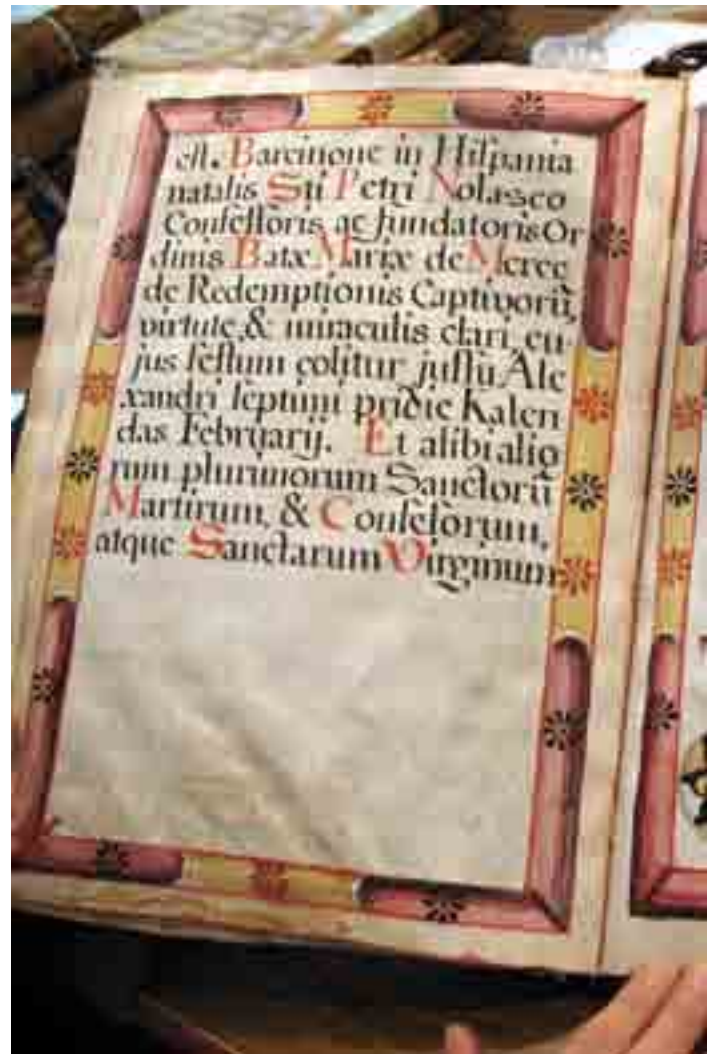 est. Barcinone in Hispania
natalis Sti Petri Nolasco
Confessoris ac fundatoris Or
dinis Batæ Mariæ de Merce
de Redemptionis Captivorū,
virtute, & miraculis clari, cu-
jus festum colitur jussu Ale
xandri septimi pridie Kalen
das Februarij. Et alibi alio
rum plurimorum Sanctorū
Martirum, & Confesorum,
atque Sanctarum Virginum